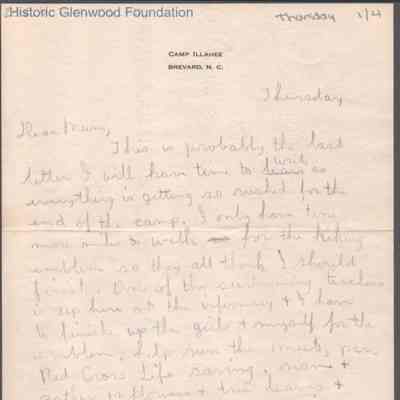 Historic Glenwood Foundation
Thursday 1/4
CAMP ILLAHEE
BREVARD, N. C.
Thursday
Dear Mum,
This is probably the last
letter I will have time to write as
everything is getting so rushed for the
end of the camp. I only have two
more miles to walk for the hiking
emblem so they all think I should
finish. One of the swimming teachers
is up here at the infirmary & I have
to finish up the girls & myself for the
emblem, help run the meet, pass
Red Cross Life saving,
gather 12 flowers & tree leaves &